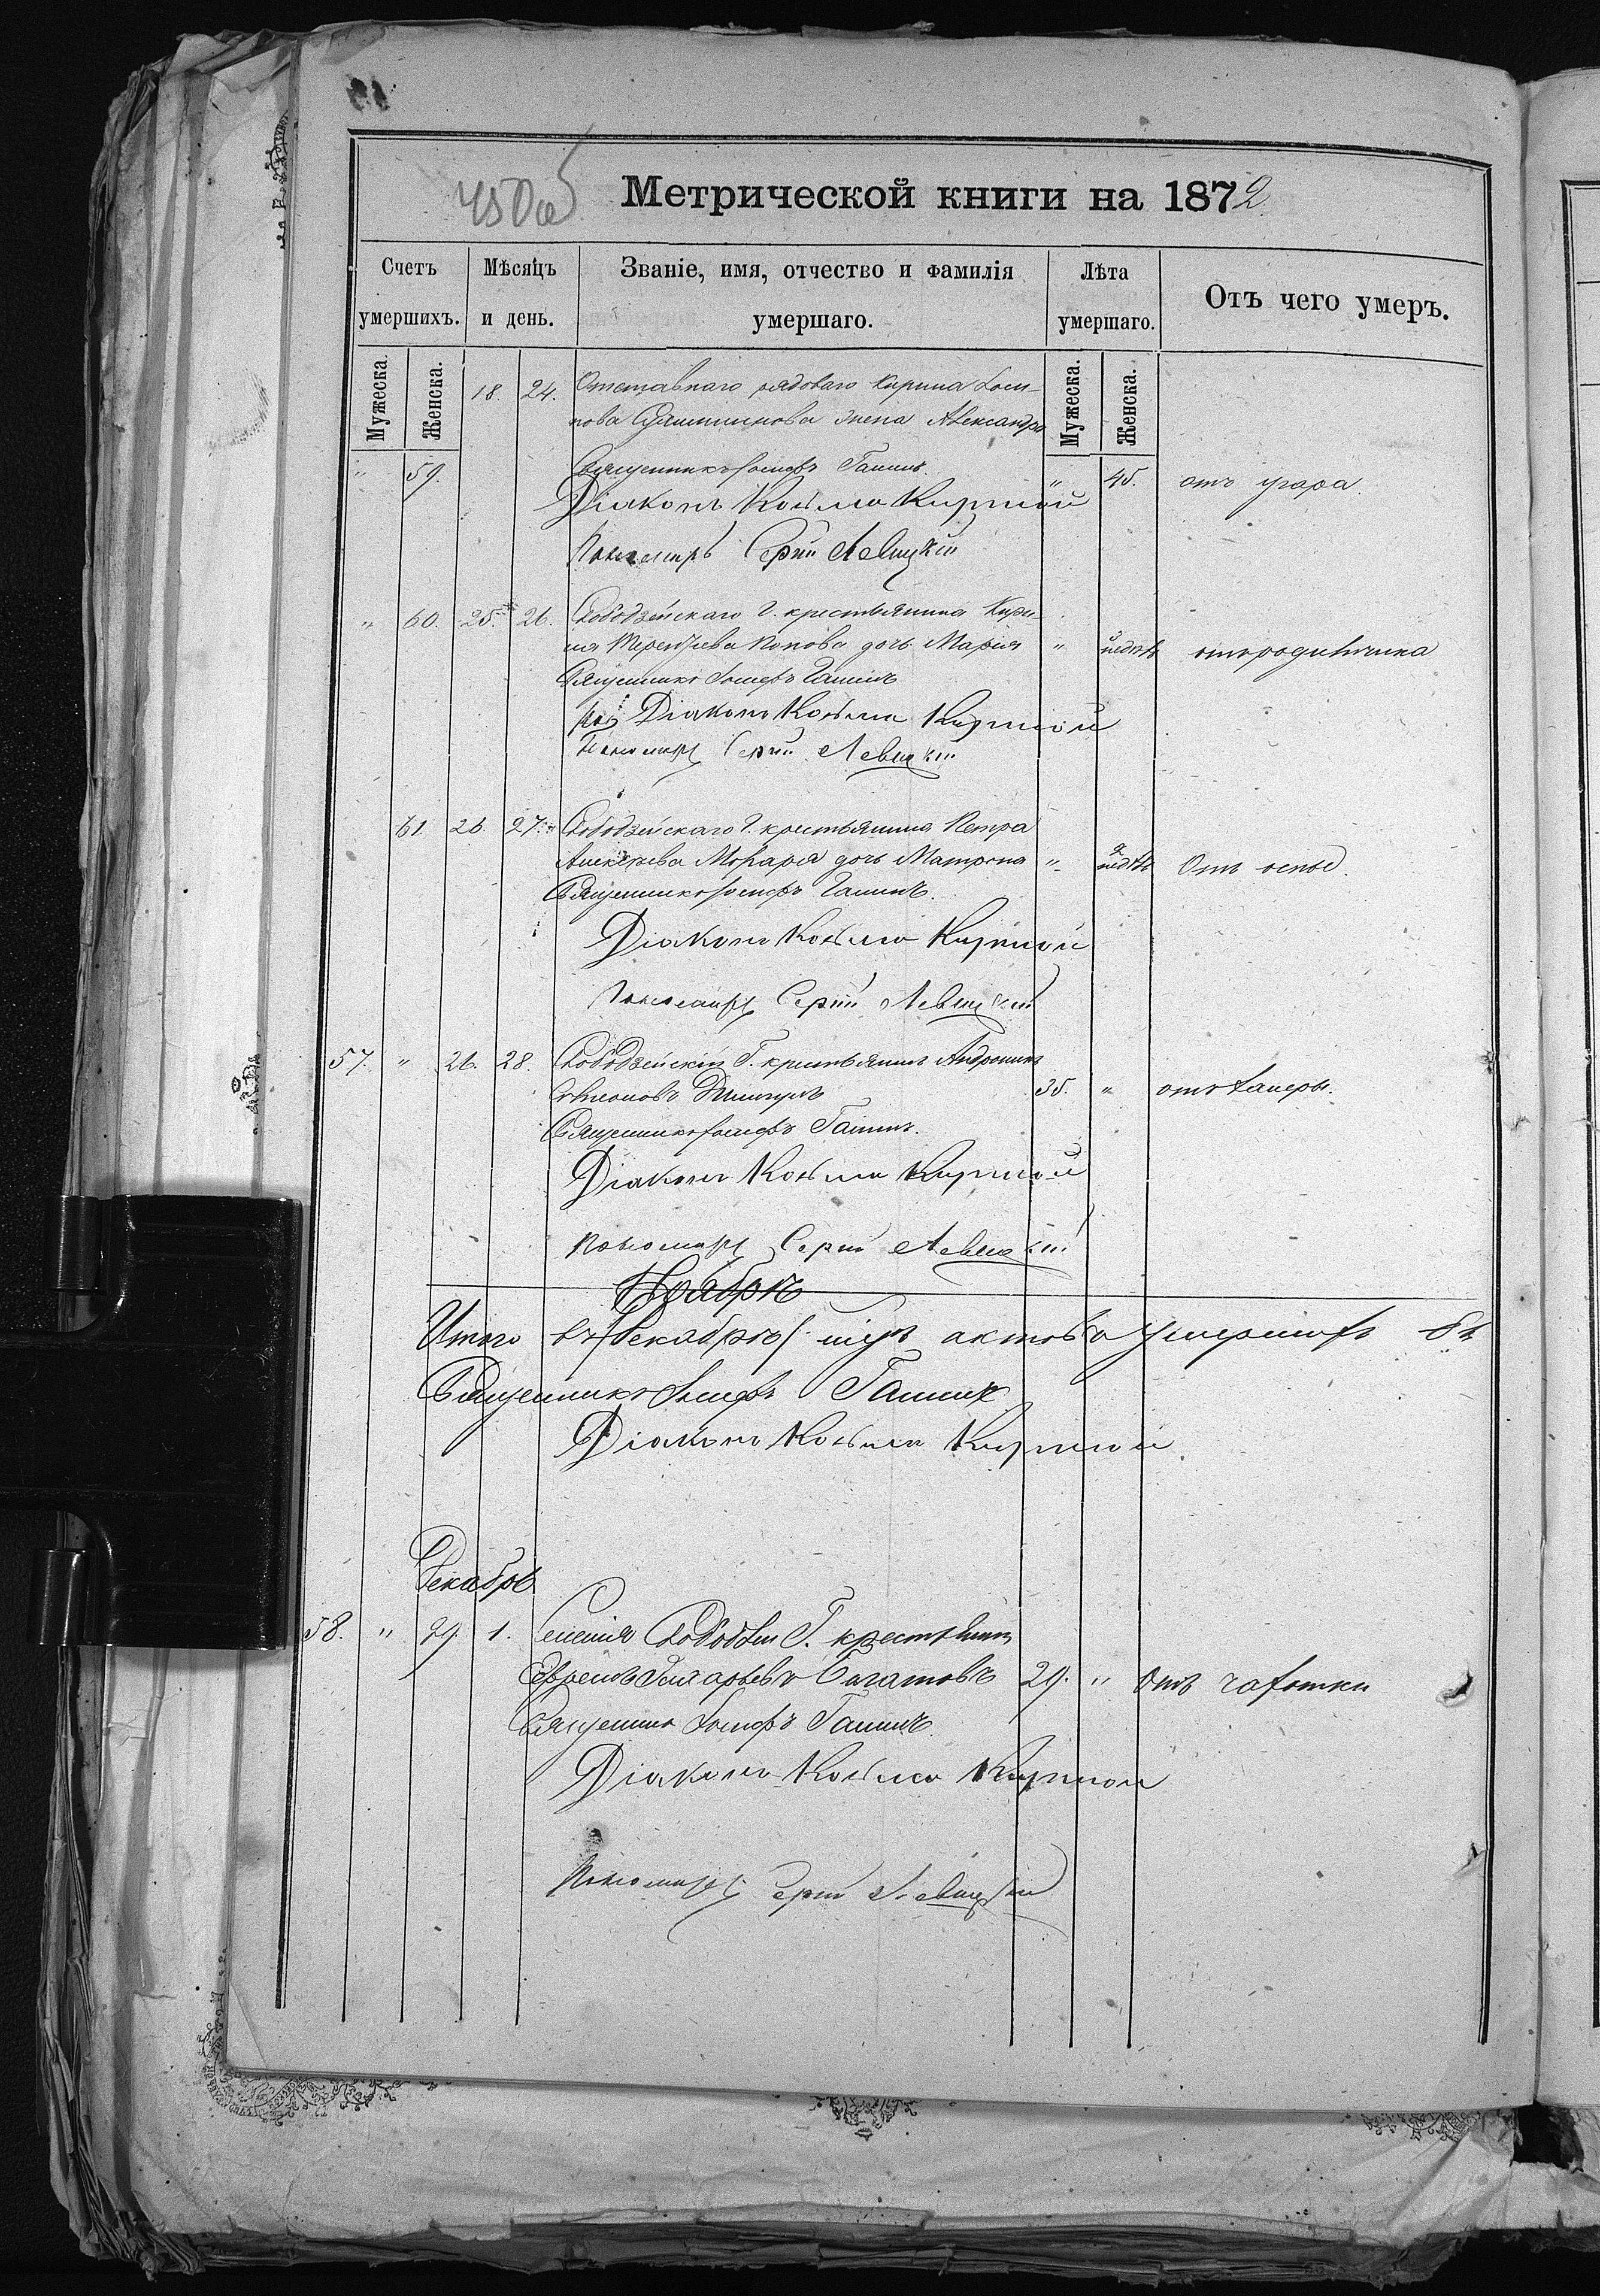 450об
Метрической книги на 1872
Счетъ умершихъ. Мѣсяцъ и день. Званіе, имя, отчество и фамилія умершаго. Лѣта умершаго. Отъ чего умеръ.
Мужеска Женска. Мужеска. Женска.
18. 24. Отставнаго рядоваго Кирила Доси-
пова жена Александра
" 59. Священникъ Іосифъ Гашинъ. " 45. отъ угара.
Діаконъ Козьма Курной
Пономарь Сергій Левицкій
" 60. 25. 26. Слободзейскаго Г. крестьянина Кири-
ла Терентіева Попова дочь Марія " недѣль отъ родимчика
Священникъ Іосифъ Гашинъ
Діаконъ Козьма Курной
Пономарь Сергій Левицкій
61. 26. 27. Слободзейскаго Г. крестьянина Петра
Алексѣева Мокаря дочь Матрона " недѣль Отъ оспы.
Священникъ Іосифъ Гашинъ.
Діаконъ Козьма Курной
Пономарь Сергій Левицкій
57. " 26. 28. Слободзейскій Г. крестьянинъ Андроникъ
35. " отъ холеры.
Священникъ Іосифъ Гашинъ.
Діаконъ Козьма Курной
Пономарь Сергій Левицкій
Ноябрь
Итого въ Декабрѣ актовъ умершихъ
Священникъ Іосифъ Гашинъ
Діаконъ Козьма Курной
Декабрь
58. " 29. 1. Селенія Слободзеи Г. крестьянинъ
Ефремъ Богатовъ 29. " Отъ чахотки
Священникъ Іосифъ Гашинъ
Діаконъ Козьма Курной
Пономарь Сергій Левицкій